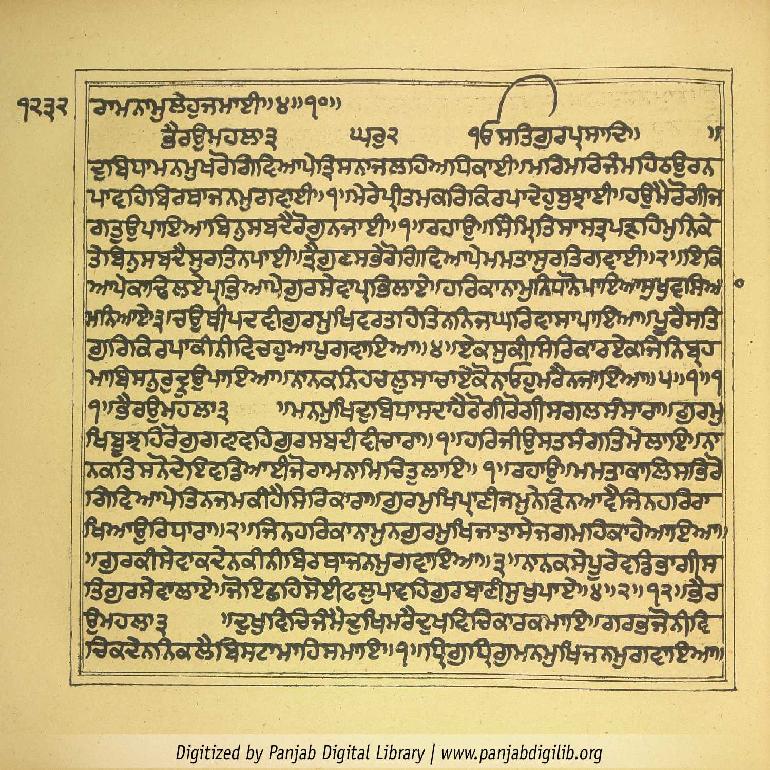 ੧੨੩੨
ਰਾਮਨਾਮੁਲੇਹੁਜਮਾਈ॥੪॥੧੦॥
ਭੈਰਉਮਹਲਾ੩ ਘਰੁ੨ ੴਸਤਿਗੁਰਪ੍ਰਸਾਦਿ॥ ॥
ਦੁਬਿਧਾਮਨਮੁਖਰੋਗਿਵਿਆਪੇਤ੍ਰਿਸਨਾਜਲਹਿਅਧਿਕਾਈ॥ਮਰਿਮਰਿਜੰਮਹਿਠਉਰਨ
ਪਾਵਹਿਬਿਰਥਾਜਨਮੁਗਵਾਈ॥੧॥ਮੇਰੇਪ੍ਰੀਤਮਕਰਿਕਿਰਪਾਦੇਹੁਬੁਝਾਈ॥ਹਉਮੈਰੋਗੀਜ
ਗਤੁਉਪਾਇਆਬਿਨੁਸਬਦੈਰੋਗੁਨਜਾਈ॥੧॥ਰਹਾਉ॥ਸਿੰਮ੍ਰਿਤਿਸਾਸਤ੍ਰਪੜਹਿਮੁਨਿਕੇ
ਤੇਬਿਨੁਸਬਦੈਸੁਰਤਿਨਪਾਈ॥ਤ੍ਰੈਗੁਣਸਭੇਰੋਗਿਵਿਆਪੇਮਮਤਾਸੁਰਤਿਗਵਾਈ॥੨॥ਇਕਿ
ਆਪੇਕਾਢਿਲਏਪ੍ਰਭਿਆਪੇਗੁਰਸੇਵਾਪ੍ਰਭਿਲਾਏ॥ਹਰਿਕਾਨਾਮੁਨਿਧਾਨੋਪਾਇਆਸੁਖੁਵਸਿਆ
ਮਨਿਆਏ॥੩॥ਚਉਥੀਪਦਵੀਗੁਰਮੁਖਿਵਰਤਹਿਤਿਨਨਿਜਘਰਿਵਾਸਾਪਾਇਆ॥ਪੂਰੈਸਤਿ
ਗੁਰਿਕਿਰਪਾਕੀਨੀਵਿਚਹੁਆਪੁਗਵਾਇਆ॥੪॥ਏਕਸੁਕੀਸਿਰਿਕਾਰਏਕਜਿਨਿਬ੍ਰਹ
ਮਾਬਿਸਨੁਰੁਦ੍ਰੁਉਪਾਇਆ॥ਨਾਨਕਨਿਹਚਲੁਸਾਚਾਏਕੋਨਾਓਹੁਮਰੈਨਜਾਇਆ॥੫॥੧॥੧
੧॥ਭੈਰਉਮਹਲਾ੩ ॥ਮਨਮੁਖਿਦੁਬਿਧਾਸਦਾਹੈਰੋਗੀਰੋਗੀਸਗਲਸੰਸਾਰਾ॥ਗੁਰਮੁ
ਖਿਬੂਝਹਿਰੋਗੁਗਵਾਵਹਿਗੁਰਸਬਦੀਵੀਚਾਰਾ॥੧॥ਹਰਿਜੀਉਸਤਸੰਗਤਿਮੇਲਾਇ॥ਨਾ
ਨਕਤਿਸਨੋਦੇਇਵਡਿਆਈਜੋਰਾਮਨਾਮਿਚਿਤੁਲਾਏ॥੧॥ਰਹਾਉ॥ਮਮਤਾਕਾਲਿਸਭਿਰੋ
ਗਿਵਿਆਪੇਤਿਨਜਮਕੀਹੈਸਿਰਿਕਾਰਾ॥ਗੁਰਮੁਖਿਪ੍ਰਾਣੀਜਮੁਨੇੜਿਨਆਵੈਜਿਨਹਰਿਰਾ
ਖਿਆਉਰਿਧਾਰਾ॥੨॥ਜਿਨਹਰਿਕਾਨਾਮੁਨਗੁਰਮੁਖਿਜਾਤਾਸੇਜਗਮਹਿਕਾਹੇਆਇਆ॥
॥ਗੁਰਕੀਸੇਵਾਕਦੇਨਕੀਨੀਬਿਰਥਾਜਨਮੁਗਵਾਇਆ॥੩॥ਨਾਨਕਸੇਪੂਰੇਵਡਭਾਗੀਸ
ਤਿਗੁਰਸੇਵਾਲਾਏ॥ਜੋਇਛਹਿਸੋਈਫਲੁਪਾਵਹਿਗੁਰਬਾਣੀਸੁਖੁਪਾਏ॥੪॥੨॥੧੨॥ਭੈਰ
ਉਮਹਲਾ੩ ॥ਦੁਖੁਵਿਚਿਜੰਮੈਦੁਖਿਮਰੈਦੁਖਵਿਚਿਕਾਰਕਮਾਇ॥ਗਰਭਜੋਨੀਵਿ
ਚਿਕਦੇਨਨਿਕਲੈਬਿਸਟਾਮਾਹਿਸਮਾਇ॥੧॥ਧ੍ਰਿਗੁਧ੍ਰਿਗੁਮਨਮੁਖਿਜਨਮੁਗਵਾਇਆ॥
Digitized by Panjab Digital Library | www.panjabdigilib.org